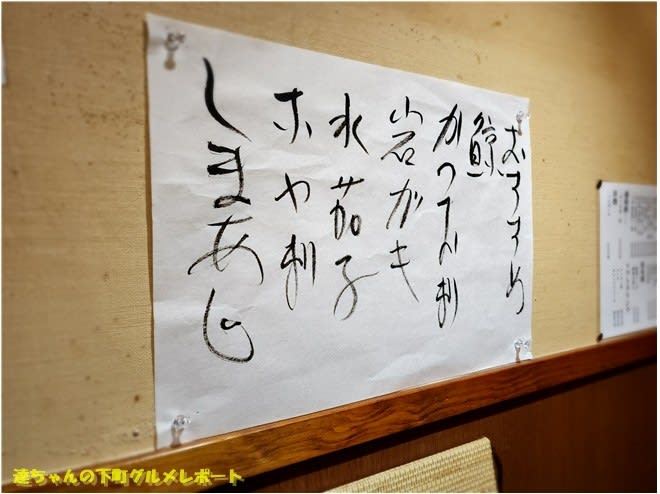 おすすめ
鯨
かつを刺
岩ガキ
水茄子
ホヤ刺
しまあじ
達ちゃんの下町グルメレポート